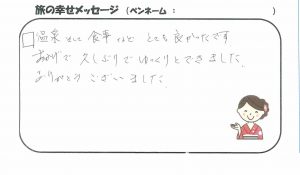 旅の幸せメッセージ（ペンネーム：　　　　　）
温泉そして食事などとても良かったです
おかげで久しぶりでゆっくりとできました
ありがとうございました